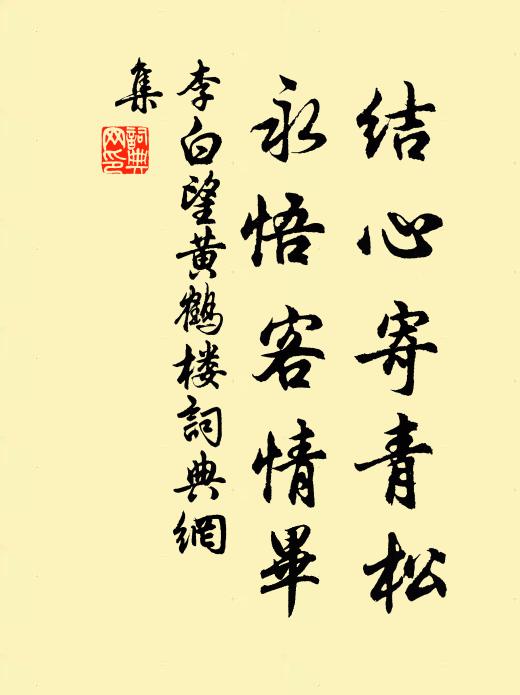 结心寄青松
永悟客情畢
李白望黄鶴楼詞典網
集
詞典
网印